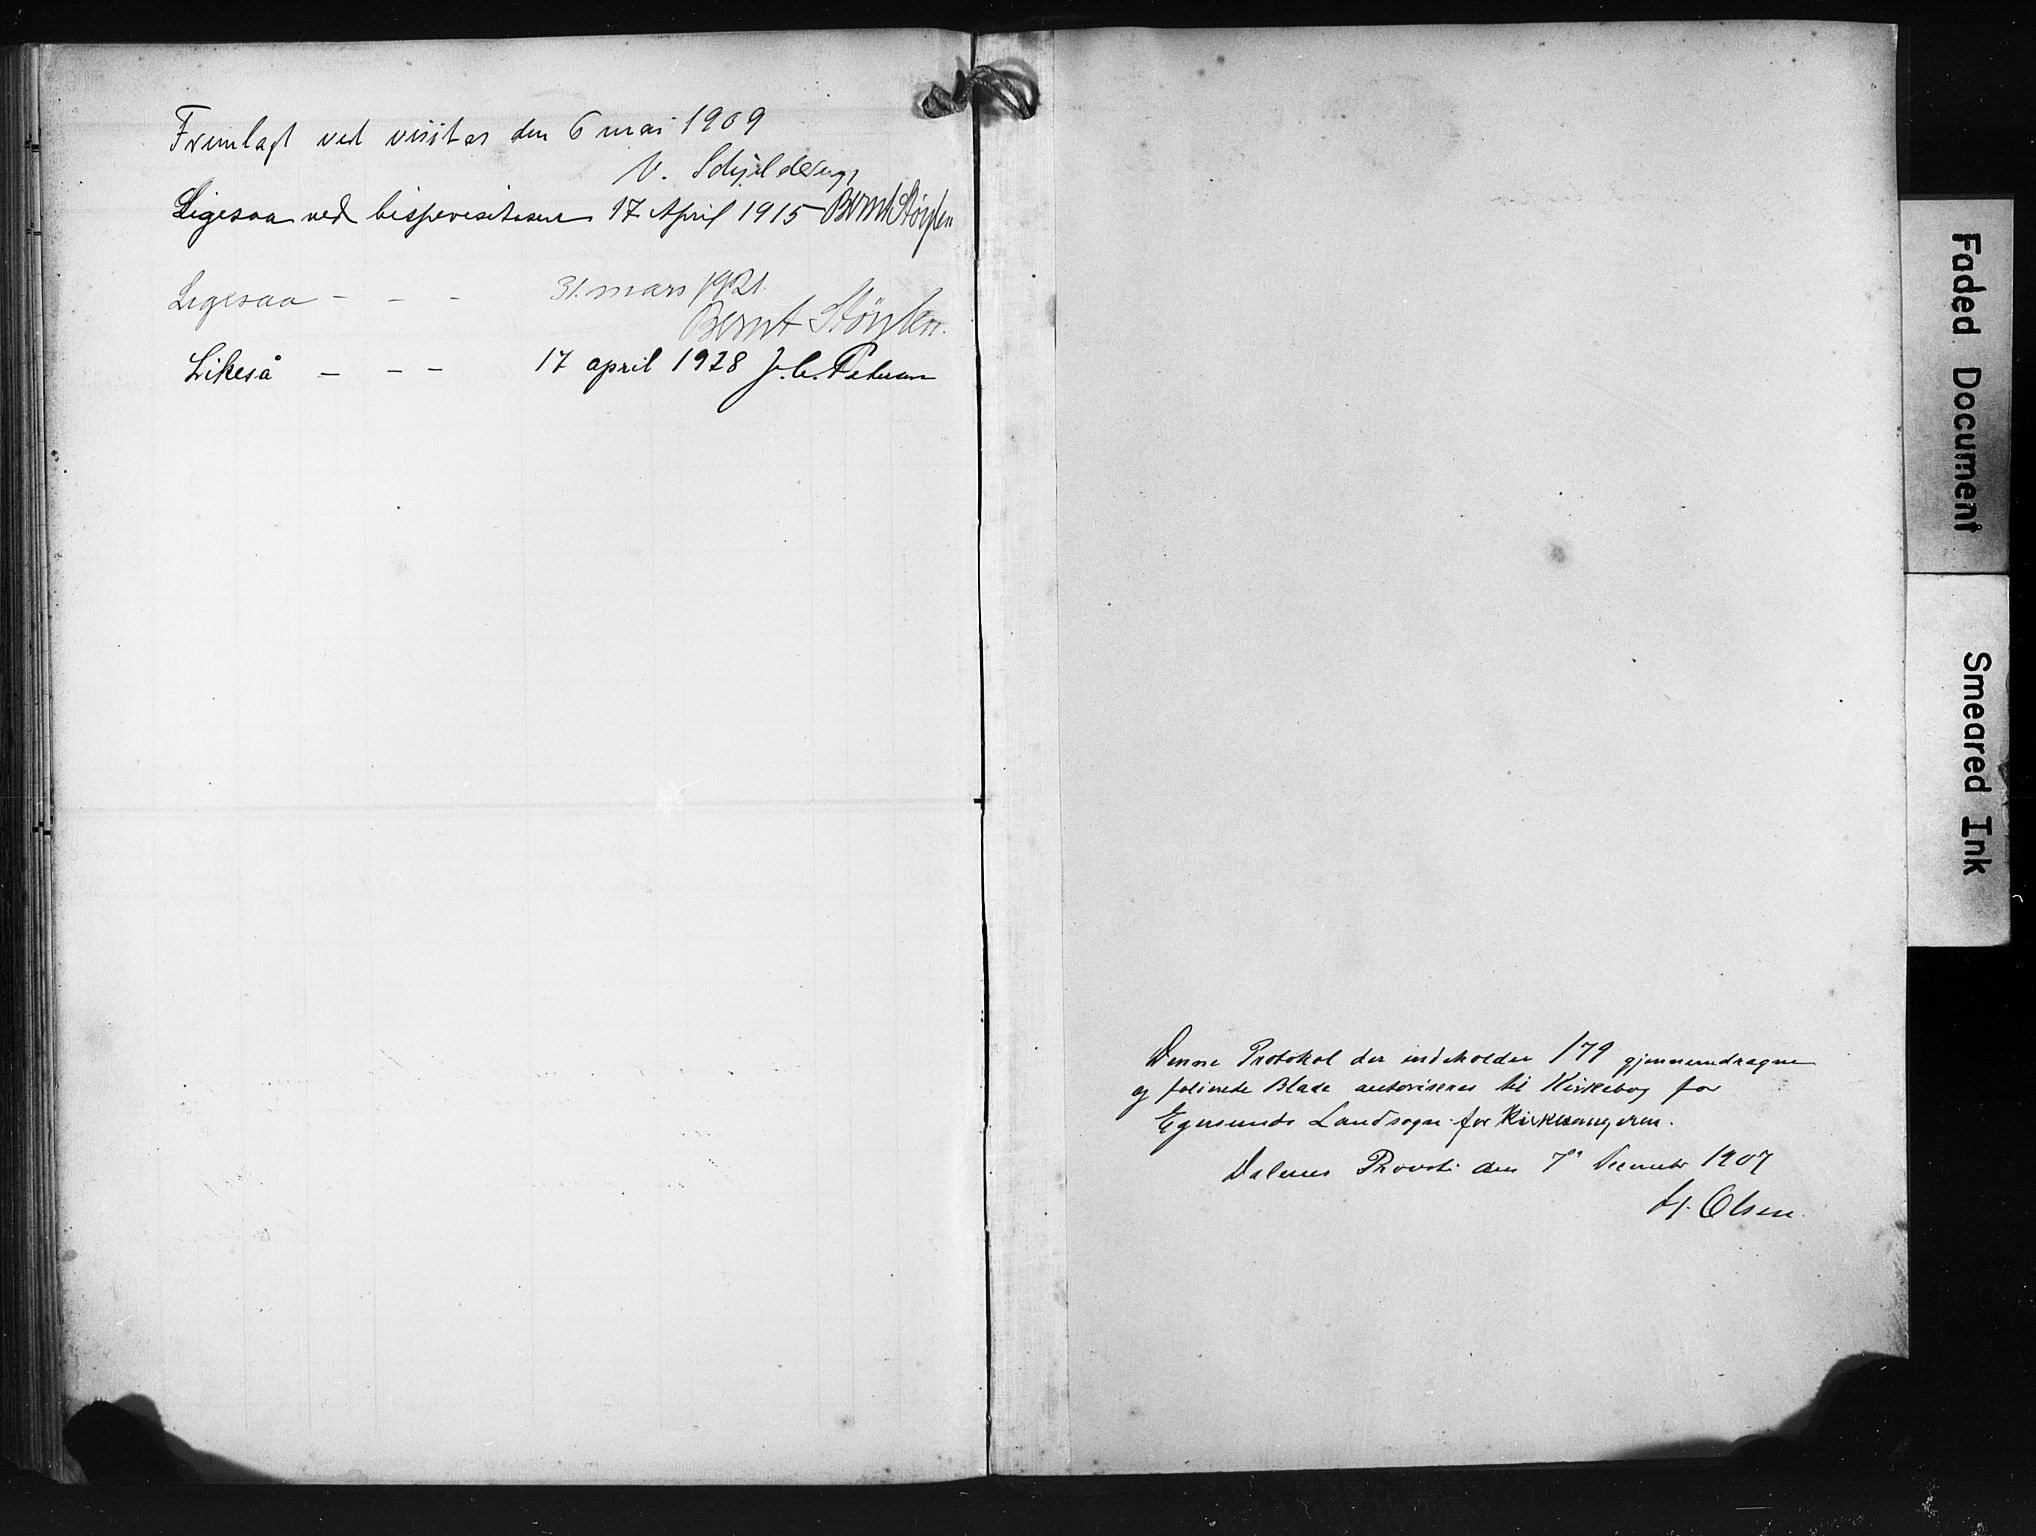 Fremlagt ved visitas den 6 mai 1909
V. Schjelderup
Ligesaa ved bispevisitasen 17 April 1915 Bernt Støylen
Ligesaa - - - 31. mars 1921.
Bernt Støylen.
Likeså - - - 17 april 1928 J. C. Petersen
Denne Protokol der indeholder 179 gjennemdragne
og folierede Blade autoriseres til Kirkebog for
Egersunds Landsogn for Kirkesangeren.
Dalernes Provsti den 7de December 1907
H. Olsen.
Faded Document
Smeared Ink